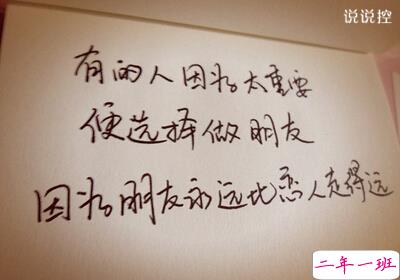 说说控
有的人因为太重要
便选择做朋友
因为朋友永远比恋人走得远
二年一班